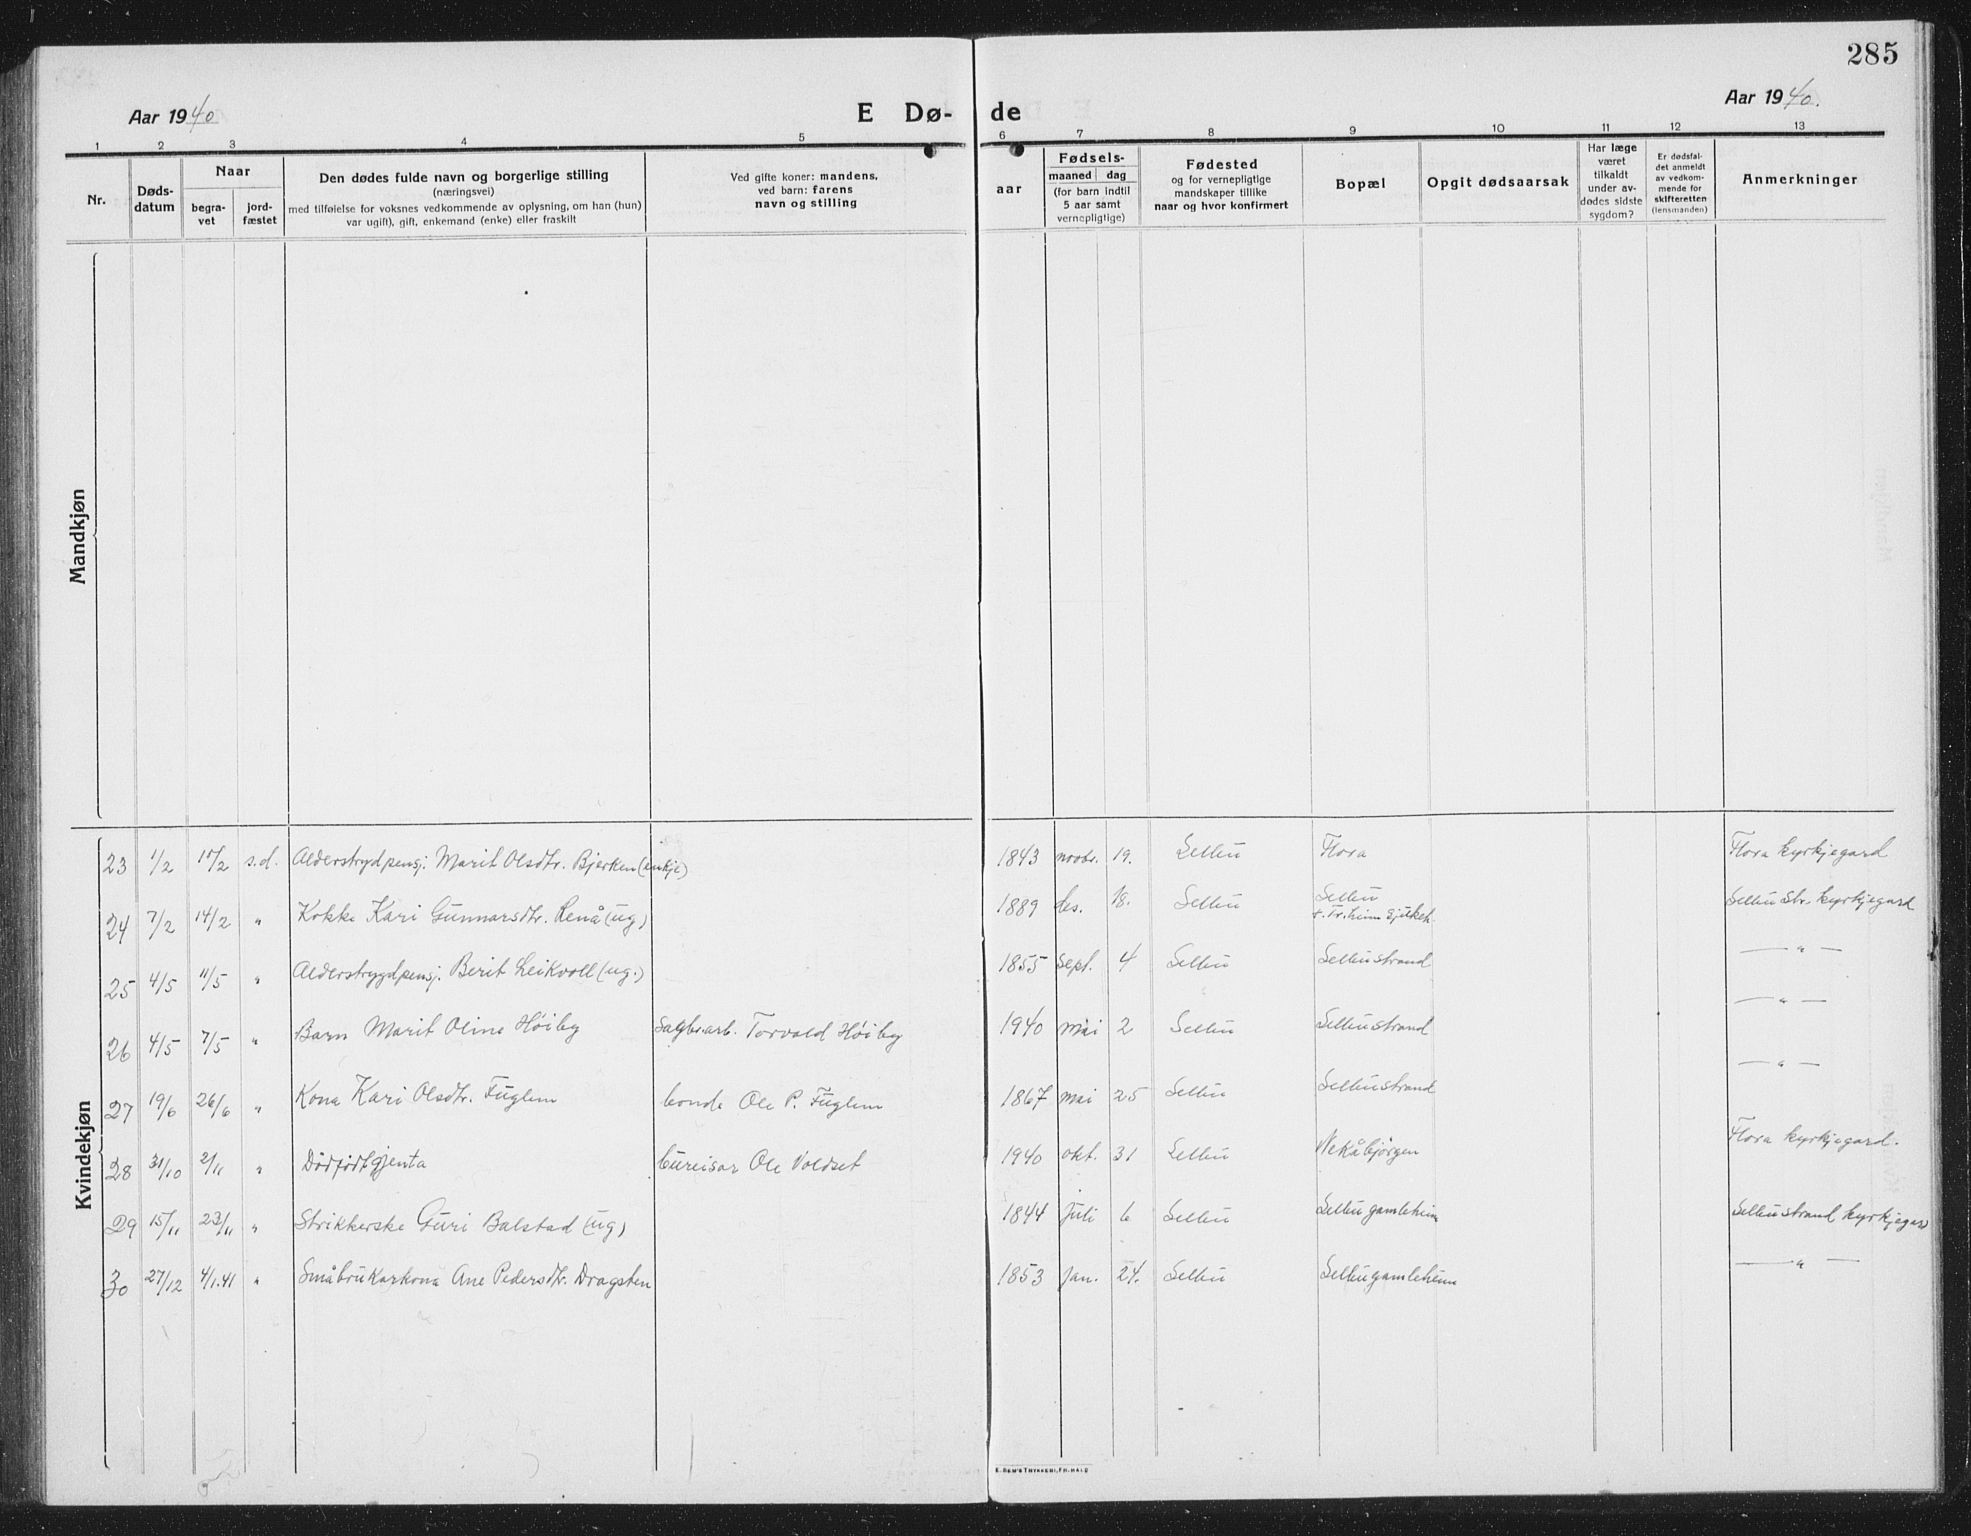 285
Aar 1940
E Dø-
de
Aar 1940.
1 2 3 4 5 6 7 8 9 10 11 12 13
Nr.
Døds-
datum
Naar
begra-
vet
jord-
fæstet
Den dødes fulde navn og borgerlige stilling
(næringsvei)
med tilføielse for voksnes vedkommende av oplysning, om han (hun)
var ugift), gift, enkemand (enke) eller fraskilt
Ved gifte koner: mandens,
ved barn: farens
navn og stilling
Fødsels-
aar
maaned dag
(for barn indtil
5 aar samt
vernepligtige)
Fødested
og for vernepligtige
mandskaper tillike
naar og hvor konfirmert
Bopæl
Opgit dødsaarsak
Har læge
været
tilkaldt
under av-
dødes sidste
sygdom?
Er dødsfal-
det anmeldt
av vedkom-
mende for
skifteretten
(lensmanden)
Anmerkninger
Mandkjøn
Kvindekjøn
23 1/2 17/2 s.d. Alderstrydpensj. Marit Olsdtr. Bjerken (enkje) 1843 novbr. 19. Selbu Flora Flora kyrkjegard
24 7/2 14/2 " Kokke Kari Gunnarsdtr. Renå (ug) 1889 des. 18. Selbu Selbu Selbu Str. kyrkjegard
f. Tr.heim sjukeh.
25 4/5 11/5 " Alderstrygdpensj. Berit Leikvoll (ug.) 1855 sept. 4 Selbu Selbustrand — " —
26 4/5 7/5 " Barn Marit Oline Høiby Sagbr.arb. Torvald Høiby 1940 mai 2 Selbu Selbustrand — " —
27 19/6 26/6 " Kona Kari Olsdtr. Fuglem bonde Ole P. Fuglem 1867 mai 25 Selbu Selbustrand — " —
28 31/10 2/11 " Dødfødt gjenta bureisar Ole Voldset 1940 okt. 31 Selbu Nekåbjørgen Flora kyrkjegard.
29 15/11 23/11 " Strikkerske Guri Balstad (ug) 1844 juli 6 Selbu Selbu gamleheim Selbustrand kyrkjegard
30 27/12 4/1.41 " Småbrukarkona Ane Pedersdtr. Dragsten 1853 jan. 24. Selbu Selbu gamleheim — " —
E. SEM'S TRYKKERI, FR.HALD